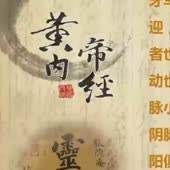 黄帝内經
靈
迎
者也
动也
脉小
阴脉
阳俱